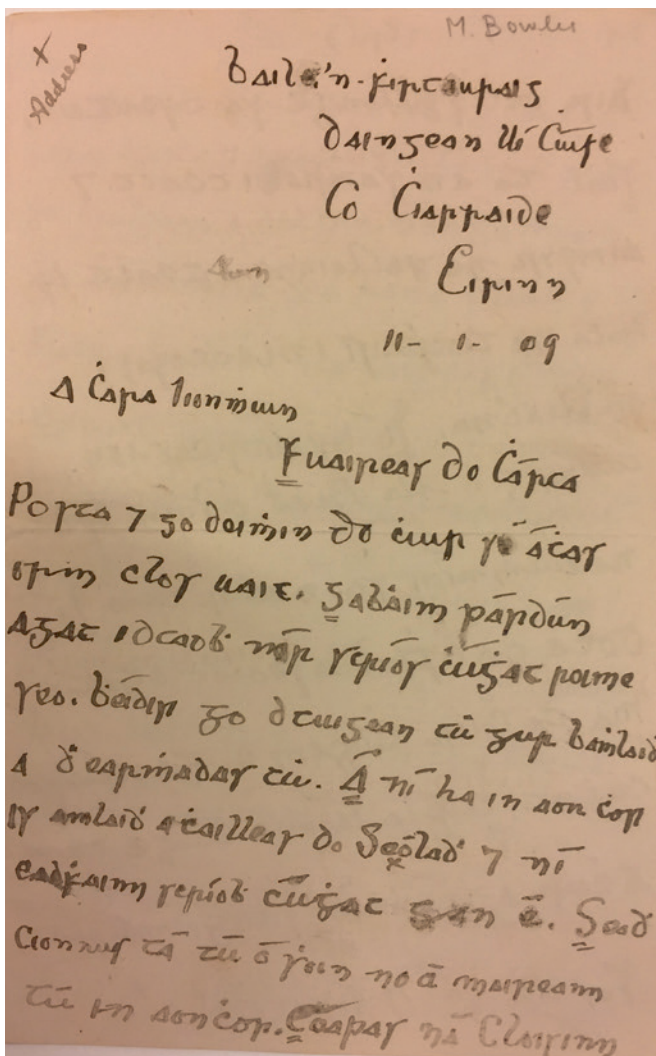 M. Bowler
x Address
Baile'n-ḟirteuraig
Daingean Uí Ċúise
Co Ċiarraide
Eirinn
11- 1- 09
A Ċara Ionṁuin
Fuaireas do Ċárta
Posta ⁊ go deiṁin do ċuir sé áṫas
orm clos uait. Gaḃaim párdún
agat i dtaoḃ nár scríos ċúġat roime
seo. b'éidir go dtuigean tú gur b'aṁlaid
a ḋearṁadas tú. Á ní ha in aon ċor
is amlaiḋ a ċailleas do Seólaḋ ⁊ ní
eadḟainn scríoḃ ċúġat gan é. Seaḋ
cionnus tá tú ó ṡoin nó á maireann
tú in aon ċor. Ceapas ná Cloisinn